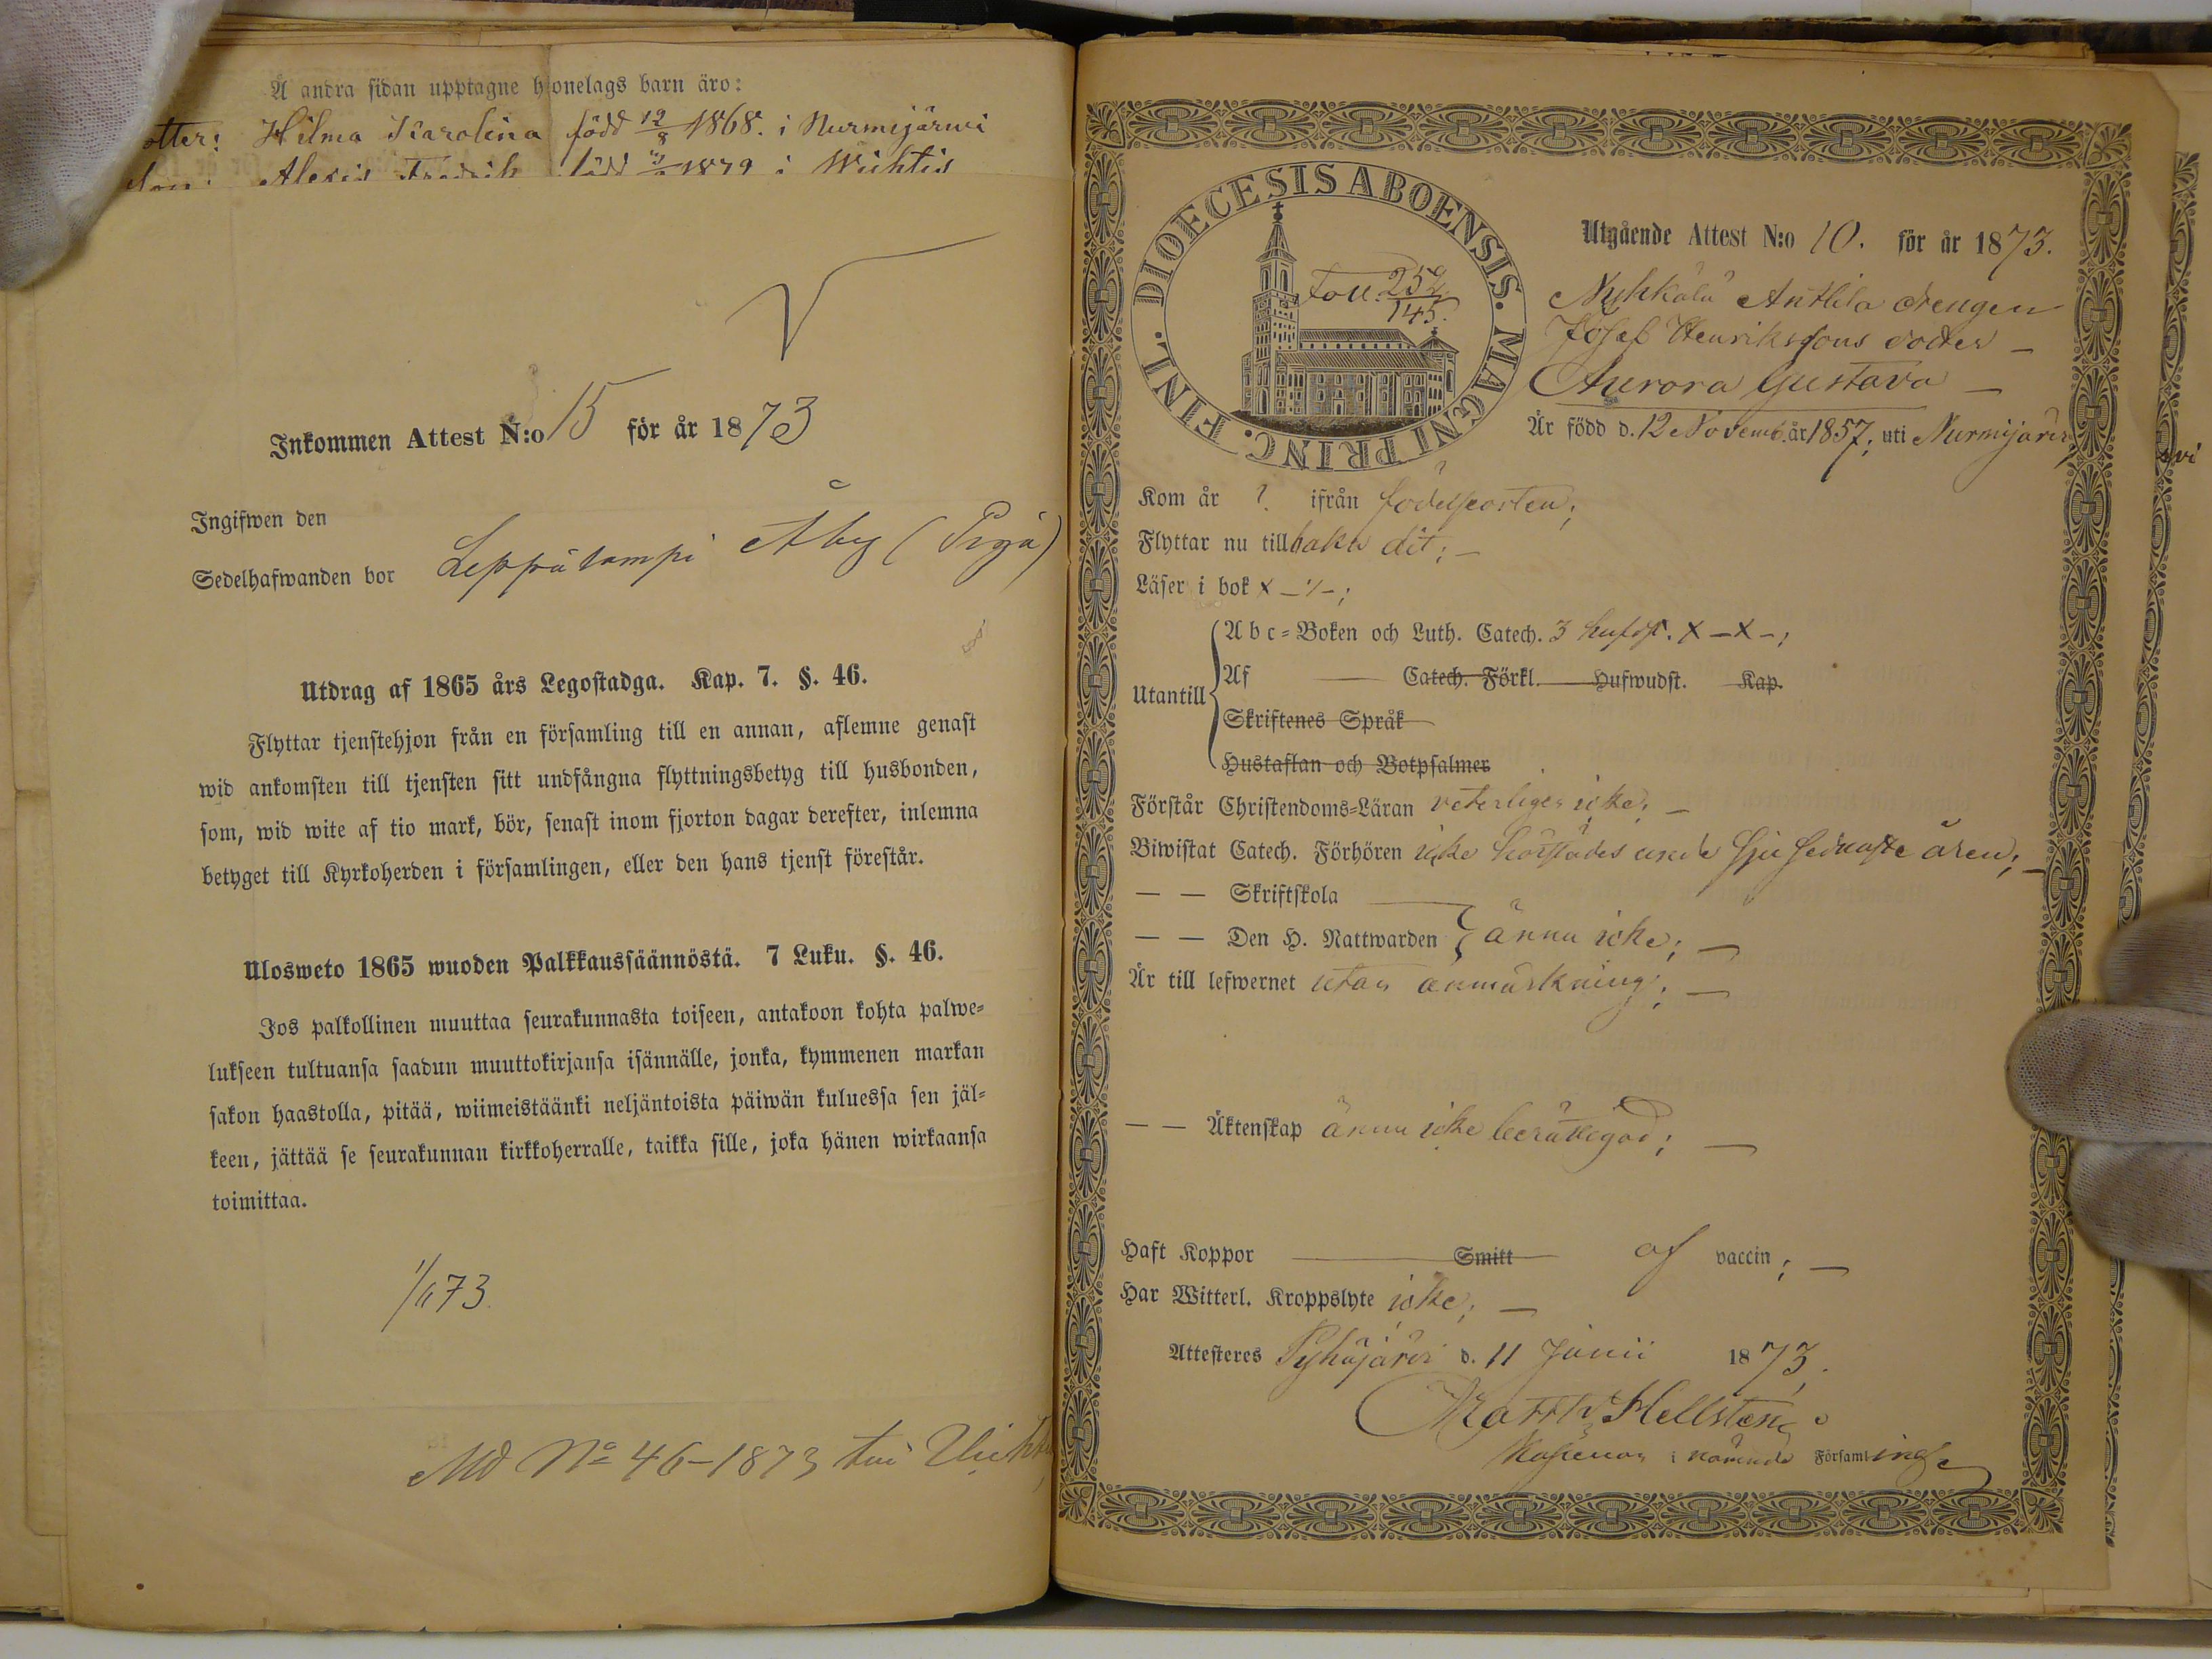 Å andra sidan upptagne hjonelags barn äro:
otter: Hilma Karolina född 12/8 1868. i Nurmijärwi
Son: Alexis Fredrik född 1879 i Wichtis
Inkommen Attest N:o 15 för år 1873
Ingifwen den
Sedelhafwanden bor Leppälampi Åby (Piga)
Utdrag af 1865 års Legostadga. Kap. 7. §. 46.
Flyttar tjenstehjon från en församling till en annan, aflemne genast
wid ankomsten till tjensten sitt undfångna flyttningsbetyg till husbonden,
som, wid wite af tio mark, bör, senast inom fjorton dagar derefter, inlemna
betyget till Kyrkoherden i församlingen, eller den hans tjenst förestår.
Ulosweto 1865 wuoden Palkkaussäännöstä. 7 Luku. §. 46.
Jos palkollinen muuttaa seurakunnasta toiseen, antakoon kohta palwe-
lukseen tultuansa saadun muuttokirjansa isännälle, jonka, kymmenen markan
sakon haastolla, pitää, wiimeistäänki neljäntoista päiwän kuluessa sen jäl-
keen, jättää se seurakunnan kirkkoherralle, taikka sille, joka hänen wirkaansa
toimittaa.
1/11 73.
Md No 46-1873 till Vichtis
DIOECESIS ABOENSIS. MAGNI PRINC. FINL.
Foll. 252/145.
Utgående Attest N:o 10. för år 1873.
Nyhkälä Anttila drengen
Josef Henrikssons dotter –
Aurora Gustava –
Är född d. 12 Novemb. år 1857; uti Nurmijärvi
Kom år ? ifrån födelseorten;
Flyttar nu tillbaka dit; –
Läser i bok x – / – ;
Abc=Boken och Luth. Catech. 3 hufdst. x – x – ;
Utantill
Af Catech. Förkl. Hufwudst. Kap.
Skriftenes Språk
Hustaflan och Botpsalmer
Förstår Christendoms=Läran veterligen icke; –
Biwistat Catech. Förhören icke härstädes under sju sednaste åren; –
— — Skriftskola
— — Den H. Nattwarden ännu icke; –
Är till lefwernet utan anmärkning; –
— — Äktenskap ännu icke berättigad; –
Haft Koppor Smitt af vaccin; –
Har Witterl. Kroppslyte icke; –
Attesteres Pyhäjärvi d. 11 Junii 1873.
Matth. Hellsten
Kapellan i nämnde Församling